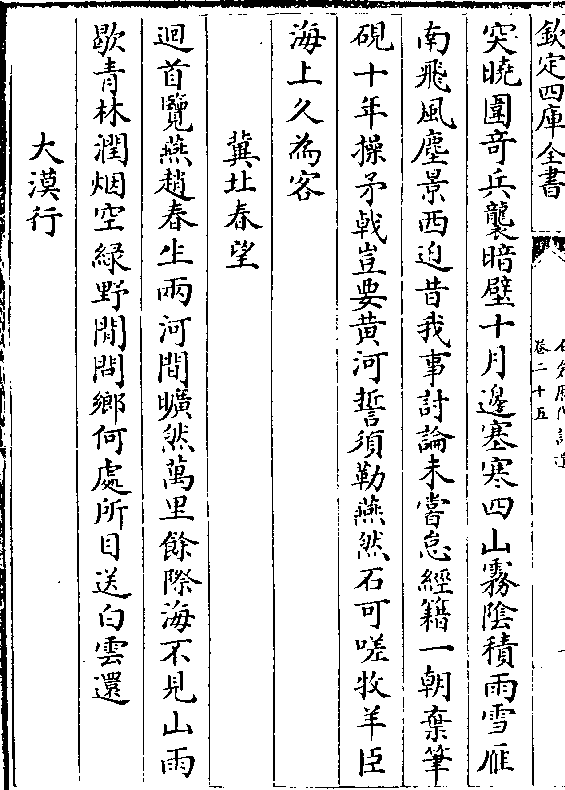 欽定四庫全書
卷二十五
突曉圍奇兵襲暗壁十月邊塞寒四山霧陰積雨雪雁
南飛風塵景西迫昔我事討論未嘗怠經籍一朝棄筆
硯十年操矛戟豈要黄河誓須勒燕然石可嗟牧羊臣
海上久為客
冀北春望
迴首覽燕趙春生兩河間曠然萬里餘際海不見山雨
歇青林潤烟空緑野閒問鄉何處所目送白雲還
大漠行